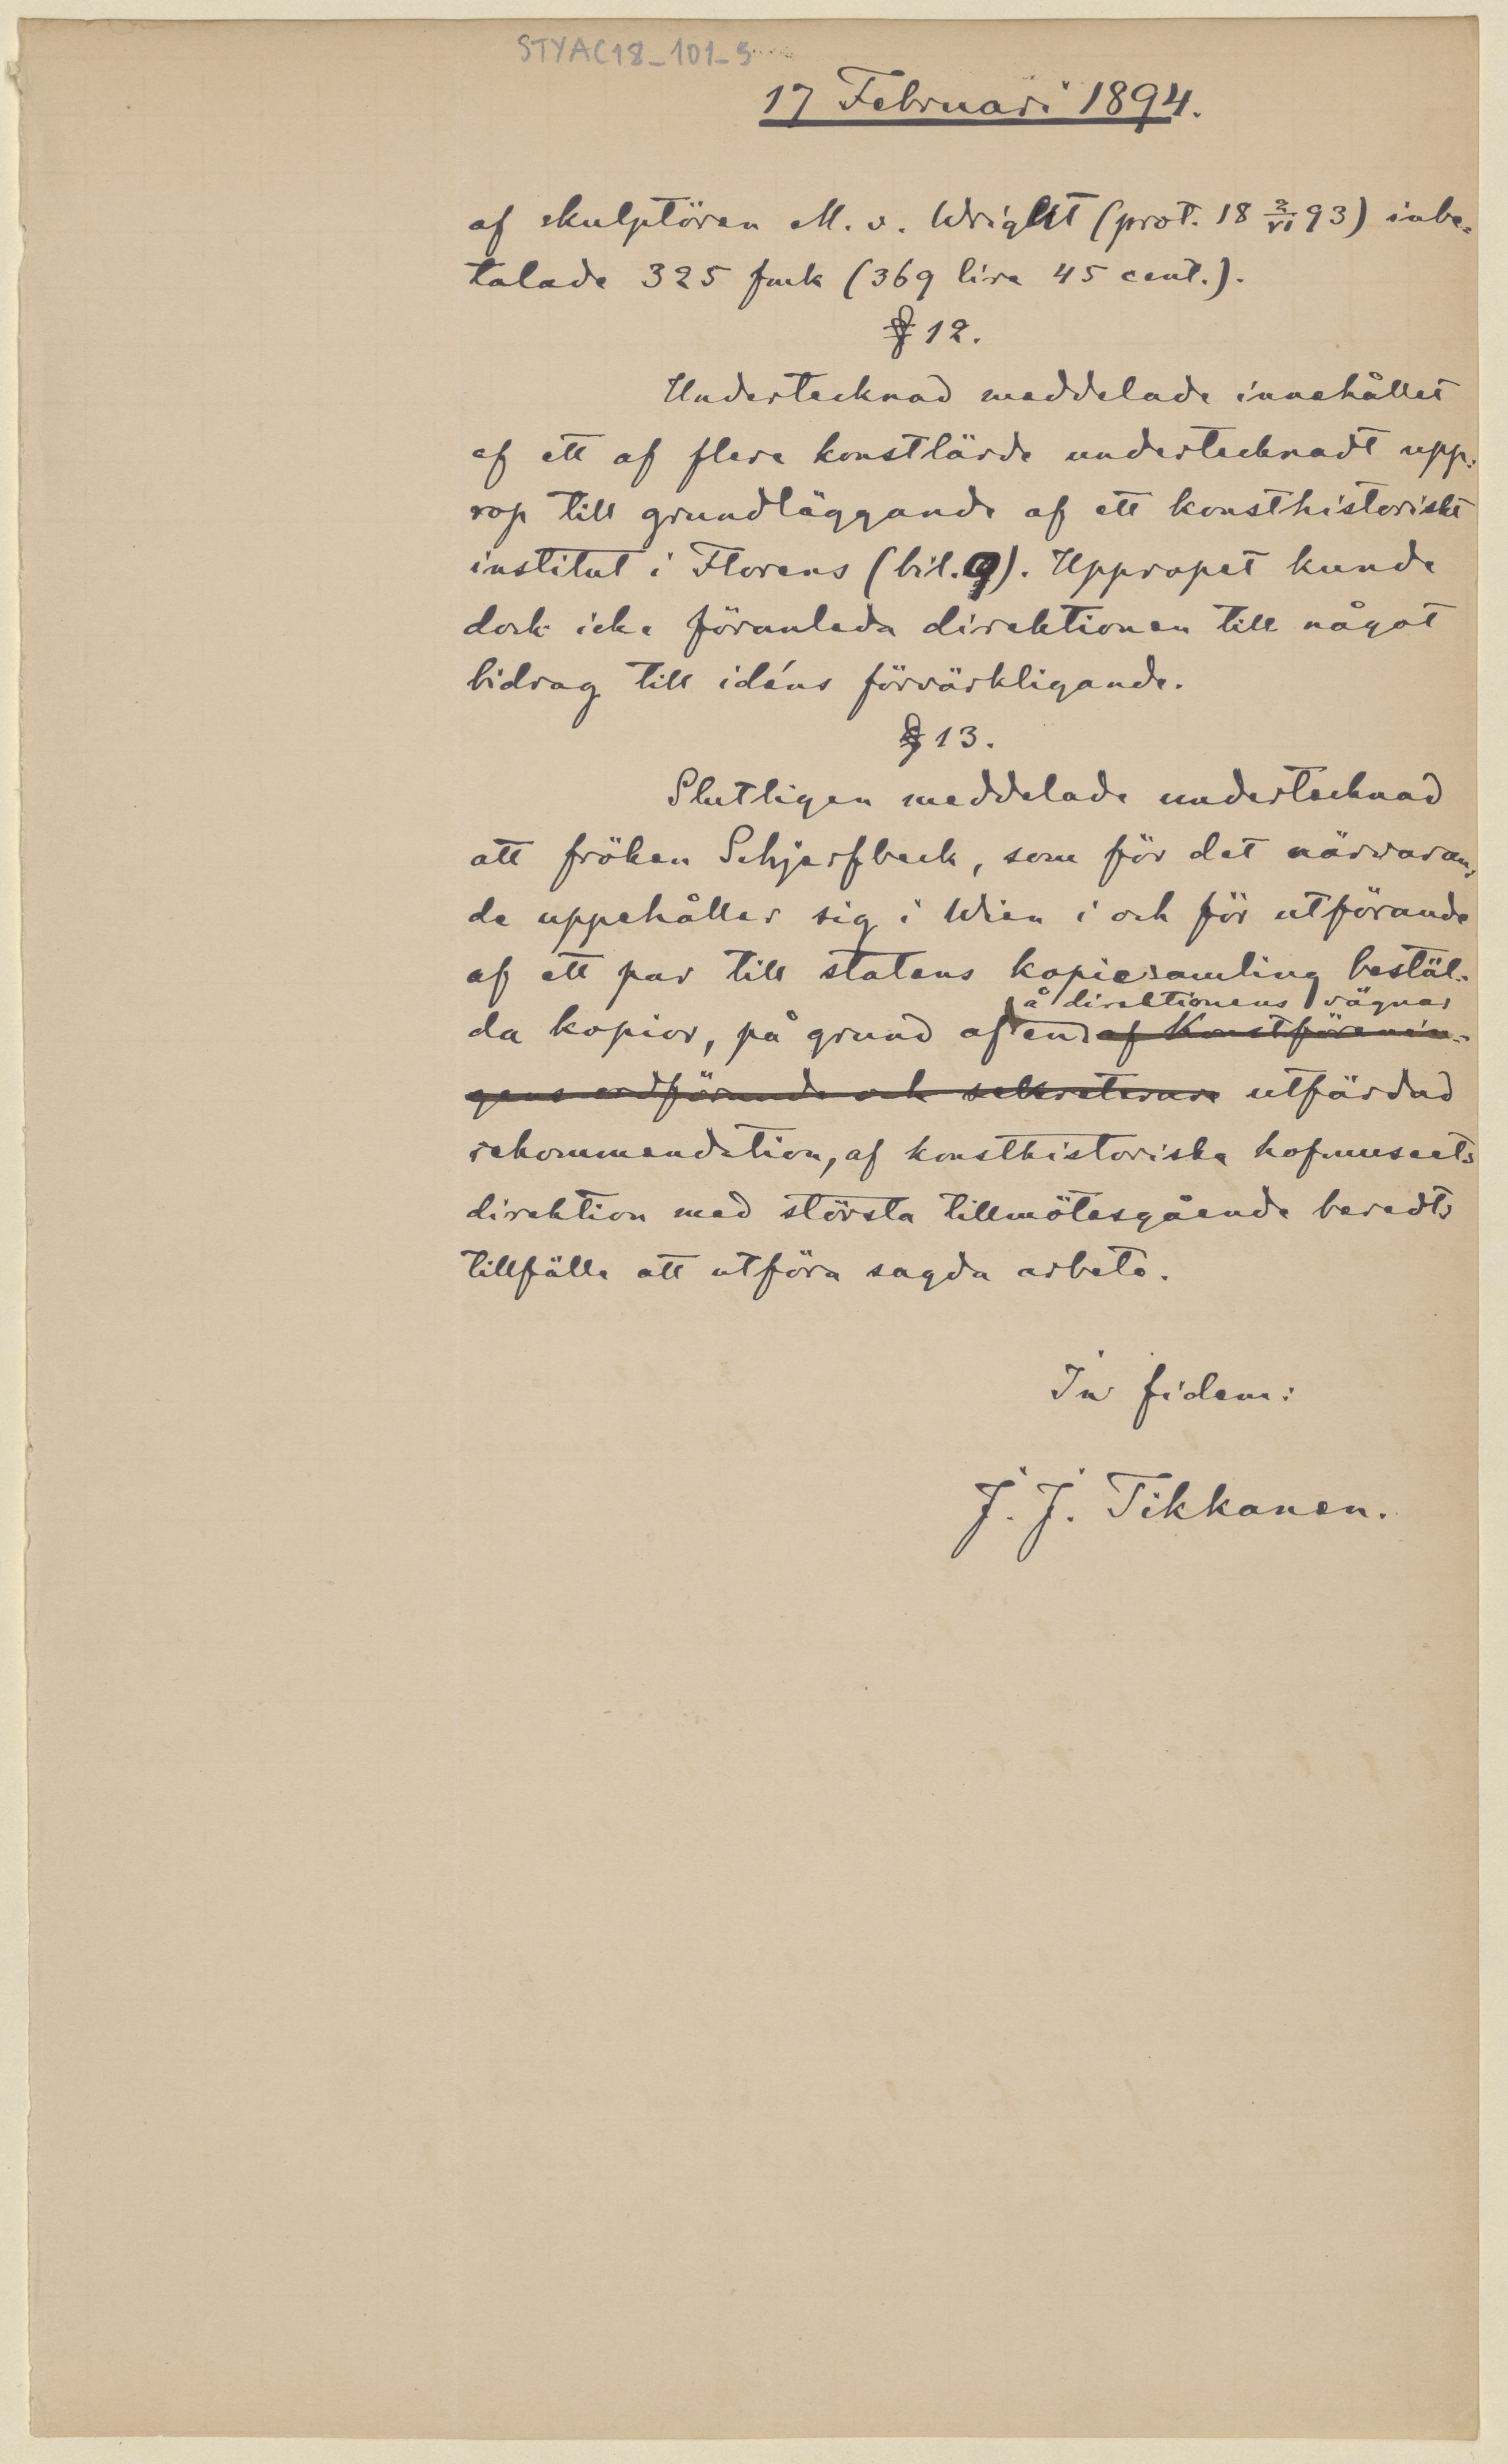 STYAC18_101_5
17 Februari 1894.
af skulptören M. v. Wright (prot. 18 2/VI 93) inbe-
talade 325 fmk (369 lire 45 cent.).
§ 12.
Undertecknad meddelade innehållet
af ett af flere konstlärde undertecknadt upp-
rop till grundläggande af ett konsthistoriskt
institut i Florens (bil. 9). Uppropet kunde
dock icke föranleda direktionen till något
bidrag till idéns förvärkligande.
§ 13.
Slutligen meddelade undertecknad
att fröken Schjerfbeck, som för det närvaran-
de uppehåller sig i Wien i och för utförande
af ett par till statens kopiesamling bestäl-
å direktionens vägnar
da kopior, på grund af en af Konstförenin-
gens ordförande och sekreterare utfärdad
rekommendation, af konsthistoriska hofmuseets
direktion med största tillmötesgående beredts
tillfälle att utföra sagda arbete.
In fidem:
J. J. Tikkanen.